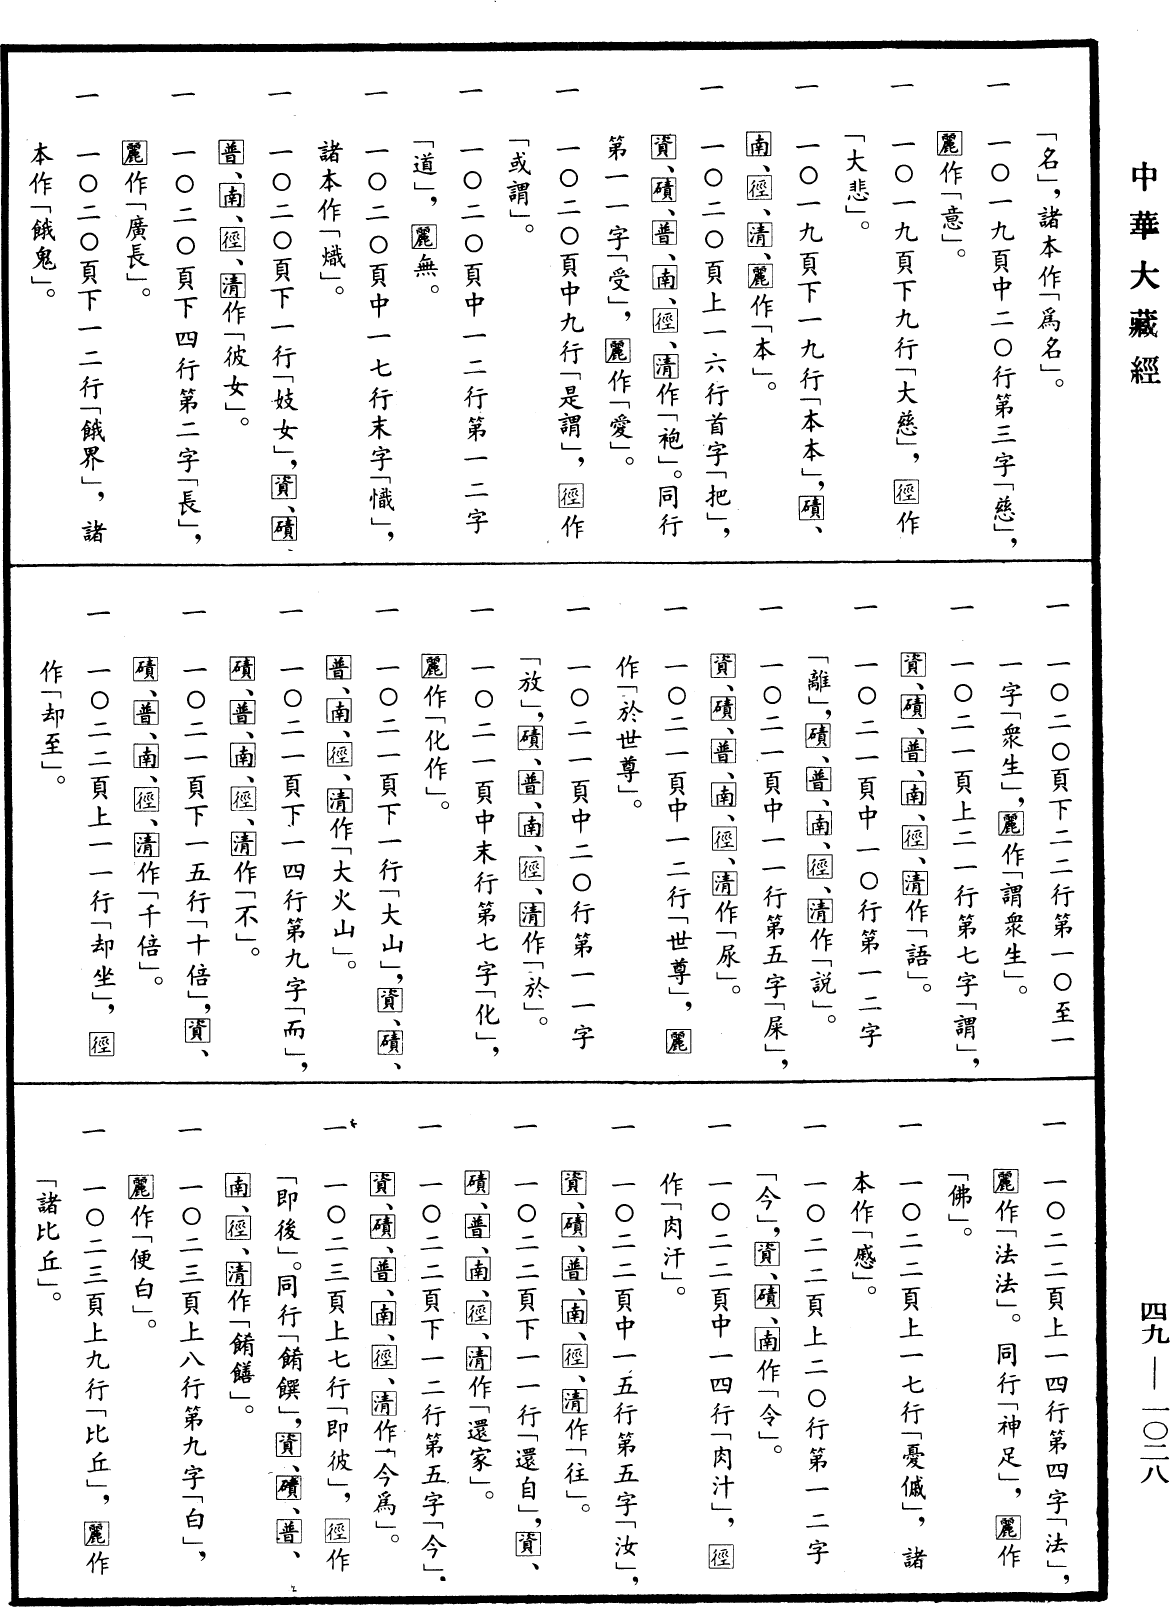 中華大藏經
四九—一〇二八
「名」，諸本作「爲名」。
一 一〇一九頁中二〇行第三字「慈」，
麗作「意」。
一 一〇一九頁下九行「大慈」，徑作
「大悲」。
一 一〇一九頁下一九行「本本」，磧、
南、徑、清、麗作「本」。
一 一〇二〇頁上一六行首字「把」，
資、磧、普、南、徑、清作「袍」。同行
第一一字「受」，麗作「愛」。
一 一〇二〇頁中九行「是謂」，徑作
「或謂」。
一 一〇二〇頁中一二行第一二字
「道」，麗無。
一 一〇二〇頁中一七行末字「懺」，
諸本作「熾」。
一 一〇二〇頁下一行「妓女」，資、磧、
普、南、徑、清作「彼女」。
一 一〇二〇頁下四行第二字「長」，
麗作「廣長」。
一 一〇二〇頁下一二行「餓界」，諸
本作「餓鬼」。
一 一〇二〇頁下二二行第一〇至一
一字「衆生」，麗作「謂衆生」。
一 一〇二一頁上二一行第七字「謂」，
資、磧、普、南、徑、清作「語」。
一 一〇二一頁中一〇行第一二字
「離」，磧、普、南、徑、清作「説」。
一 一〇二一頁中一一行第五字「屎」，
資、磧、普、南、徑、清作「尿」。
一 一〇二一頁中一二行「世尊」，麗
作「於世尊」。
一 一〇二一頁中二〇行第一一字
「放」，磧、普、南、徑、清作「於」。
一 一〇二一頁中末行第七字「化」，
麗作「化作」。
一 一〇二一頁下一行「大山」，資、磧、
普、南、徑、清作「大火山」。
一 一〇二一頁下一四行第九字「而」，
磧、普、南、徑、清作「不」。
一 一〇二一頁下一五行「十倍」，資、
磧、普、南、徑、清作「千倍」。
一 一〇二二頁上一一行「却坐」，徑
作「却至」。
一 一〇二二頁上一四行第四字「法」，
麗作「法法」。同行「神足」，麗作
「佛」。
一 一〇二二頁上一七行「憂慼」，諸
本作「感」。
一 一〇二二頁上二〇行第一二字
「今」，資、磧、南作「令」。
一 一〇二二頁中一四行「肉汁」，徑
作「肉汗」。
一 一〇二二頁中一五行第五字「汝」，
資、磧、普、南、徑、清作「往」。
一 一〇二二頁下一一行「還自」，資、
磧、普、南、徑、清作「還家」。
一 一〇二二頁下一二行第五字「今」，
資、磧、普、南、徑、清作「今爲」。
一 一〇二三頁上七行「即彼」，徑作
「即後」。同行「餚饌」，資、磧、普、
南、徑、清作「餚饍」。
一 一〇二三頁上八行第九字「白」，
麗作「便白」。
一 一〇二三頁上九行「比丘」，麗作
「諸比丘」。